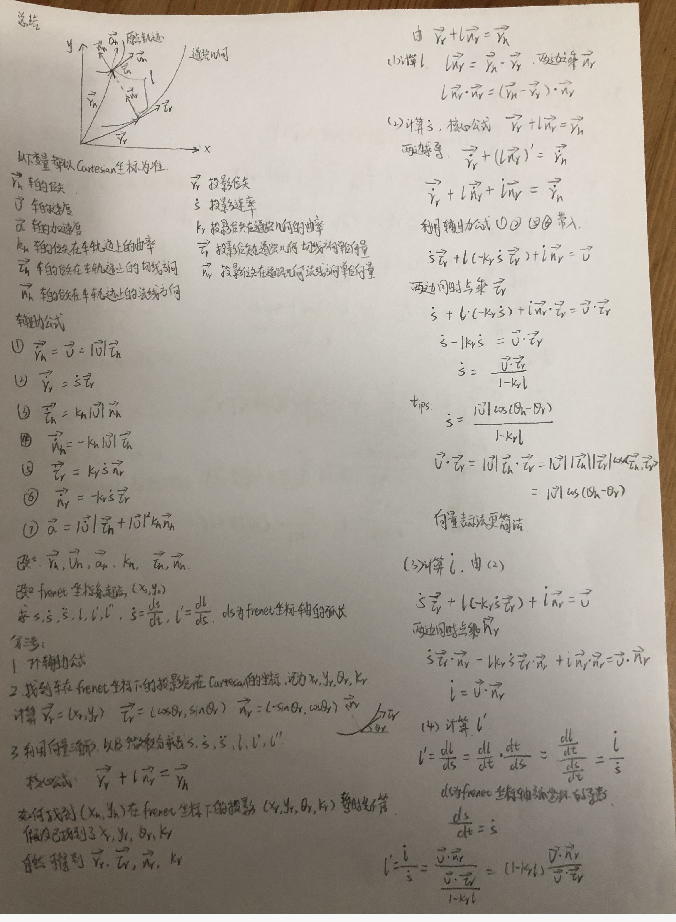 总结
y
x
车的轨迹
道路几何
l
$\vec{r}_h$
$\vec{r}_r$
$\vec{\tau}_r$
以下变量都以Cartesian坐标为准
$\vec{r}_h$ 车的位矢 $\vec{r}_r$ 投影位矢
$\vec{v}$ 车的速度 $\dot{s}$ 投影速率
$\vec{a}$ 车的加速度 $k_r$ 投影位矢在道路几何的曲率
$k_h$ 车的位矢在车轨迹上的曲率 $\vec{\tau}_r$ 投影位矢在道路几何切线方向单位向量
$\vec{\tau}_h$ 车的位矢在车轨迹上的切线方向 $\vec{n}_r$ 投影位矢在道路几何法线方向单位向量
$\vec{n}_h$ 车的位矢在车轨迹上的法线方向
辅助公式
① $\dot{\vec{r}}_h = \vec{v} = |\vec{v}|\vec{\tau}_h$
② $\dot{\vec{r}}_r = \dot{s}\vec{\tau}_r$
③ $\dot{\vec{\tau}}_h = k_h|\vec{v}|\vec{n}_h$
④ $\dot{\vec{n}}_h = -k_h|\vec{v}|\vec{\tau}_h$
⑤ $\dot{\vec{\tau}}_r = k_r\dot{s}\vec{n}_r$
⑥ $\dot{\vec{n}}_r = -k_r\dot{s}\vec{\tau}_r$
⑦ $\vec{a} = |\dot{\vec{v}}|\vec{\tau}_h + |\vec{v}|^2 k_h\vec{n}_h$
已知: $\vec{r}_h, \vec{v}_h, \vec{a}_h, k_h, \vec{\tau}_h, \vec{n}_h$
已知frenet坐标系起点$(x_0, y_0)$
求 $s, \dot{s}, \ddot{s}, l, l', l''$, $\dot{s} = \frac{ds}{dt}$, $l' = \frac{dl}{ds}$. ds为frenet坐标轴的弧长
步:
1 7个辅助公式
2 找到车在frenet坐标下的投影点在Cartesian的坐标,记为$x_r, y_r, \theta_r, k_r$
计算 $\vec{r}_r = (x_r, y_r)$ $\vec{\tau}_r = (\cos\theta_r, \sin\theta_r)$ $\vec{n}_r = (-\sin\theta_r, \cos\theta_r)$ $\vec{n}_r$ $\vec{\tau}_r$ $\theta_r$
3 利用向量三角形,以及微积分求出 $s, \dot{s}, \ddot{s}, l, l', l''$
核心公式: $\vec{r}_r + l\vec{n}_r = \vec{r}_h$
如何找到$(x_h, y_h)$在frenet坐标下的投影$(x_r, y_r, \theta_r, k_r)$暂时先不管
假设已找到了 $x_r, y_r, \theta_r, k_r$
自然可得到 $\vec{r}_r, \vec{\tau}_r, \vec{n}_r, k_r$
由 $\vec{r}_r + l\vec{n}_r = \vec{r}_h$
(1)计算l. $l\vec{n}_r = \vec{r}_h - \vec{r}_r$. 两边点乘$\vec{n}_r$
$l\vec{n}_r \cdot \vec{n}_r = (\vec{r}_h - \vec{r}_r) \cdot \vec{n}_r$
(2)计算$\dot{s}$, 核心公式 $\vec{r}_r + l\vec{n}_r = \vec{r}_h$
两边求导 $\dot{\vec{r}}_r + (l\vec{n}_r)' = \dot{\vec{r}}_h$
$\dot{\vec{r}}_r + l\dot{\vec{n}}_r + \dot{l}\vec{n}_r = \dot{\vec{r}}_h$
利用辅助公式 ① ② ⑥ 带入.
$\dot{s}\vec{\tau}_r + l(-k_r\dot{s}\vec{\tau}_r) + \dot{l}\vec{n}_r = \vec{v}$
两边同时点乘 $\vec{\tau}_r$
$\dot{s} + l\cdot(-k_r\dot{s}) + \dot{l}\vec{n}_r \cdot \vec{\tau}_r = \vec{v} \cdot \vec{\tau}_r$
$\dot{s} - lk_r\dot{s} = \vec{v} \cdot \vec{\tau}_r$
$\dot{s} = \frac{\vec{v} \cdot \vec{\tau}_r}{1 - k_r l}$
tips. $\dot{s} = \frac{|\vec{v}|\cos(\theta_h - \theta_r)}{1 - k_r l}$
$\vec{v} \cdot \vec{\tau}_r = |\vec{v}|\vec{\tau}_h \cdot \vec{\tau}_r = |\vec{v}||\vec{\tau}_h||\vec{\tau}_r|\cos(\vec{\tau}_h, \vec{\tau}_r)$
$= |\vec{v}|\cos(\theta_h - \theta_r)$
向量表示法更简洁
(3)计算$\dot{l}$, 由(2)
$\dot{s}\vec{\tau}_r + l(-k_r\dot{s}\vec{\tau}_r) + \dot{l}\vec{n}_r = \vec{v}$
两边同时点乘$\vec{n}_r$
$\dot{s}\vec{\tau}_r \cdot \vec{n}_r - lk_r\dot{s}\vec{\tau}_r \cdot \vec{n}_r + \dot{l}\vec{n}_r \cdot \vec{n}_r = \vec{v} \cdot \vec{n}_r$
$\dot{l} = \vec{v} \cdot \vec{n}_r$
(4)计算$l'$
$l' = \frac{dl}{ds} = \frac{dl}{dt} \cdot \frac{dt}{ds} = \frac{\frac{dl}{dt}}{\frac{ds}{dt}} = \frac{\dot{l}}{\dot{s}}$
ds为frenet坐标轴
$\frac{ds}{dt} = \dot{s}$
$l' = \frac{\dot{l}}{\dot{s}} = \frac{\vec{v} \cdot \vec{n}_r}{\frac{\vec{v} \cdot \vec{\tau}_r}{1 - k_r l}} = (1 - k_r l)\frac{\vec{v} \cdot \vec{n}_r}{\vec{v} \cdot \vec{\tau}_r}$